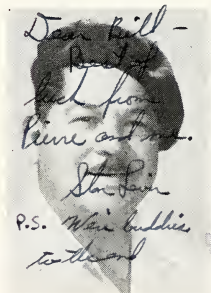 Dear Bill –
Best of
luck from
Pierre and me.
Stan
P.S. We're buddies
to the end